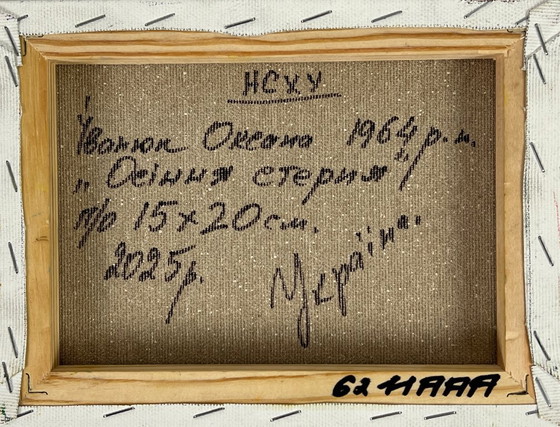 НСХУ
Іванюк Оксана 1964 р.н.
„Осіння стерня"
п/о 15х20см.
2025р.
Україна.
62 НААА